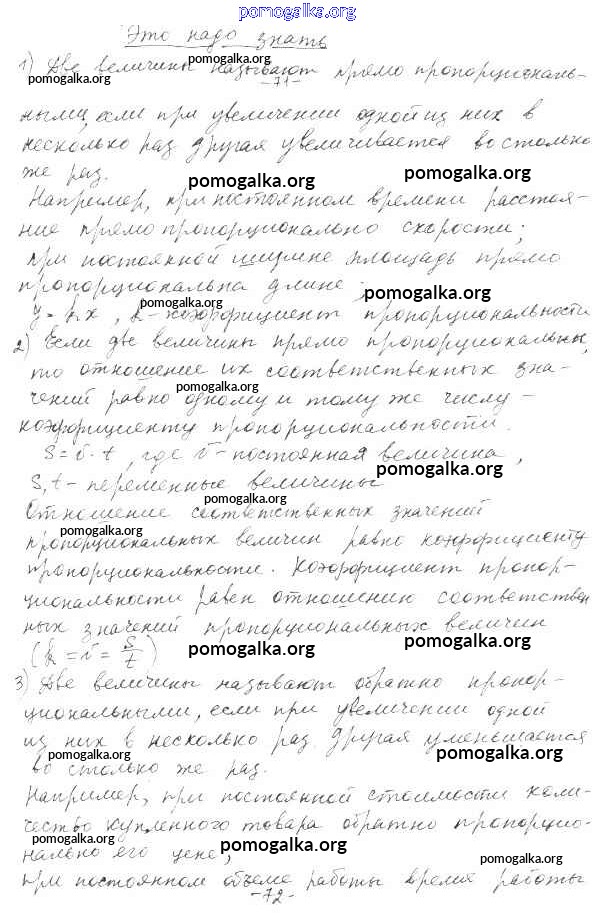 pomogalka.org
Это надо знать
1) Две величины называют прямо пропорциональ-
pomogalka.org
-71-
ными, если при увеличении одной из них в
несколько раз другая увеличивается во столько
же раз.
pomogalka.org
pomogalka.org
Например, при постоянном времени расстоя-
ние прямо пропорционально скорости;
при постоянной ширине площадь прямо
пропорциональна длине;
pomogalka.org
pomogalka.org
y = k·x, k - коэффициент пропорциональности
2) Если две величины прямо пропорциональны,
то отношение их соответственных зна-
pomogalka.org
чений равно одному и тому же числу -
коэффициенту пропорциональности.
S = v · t, где v - постоянная величина,
pomogalka.org
S, t - переменные величины
pomogalka.org
Отношение соответственных значений
pomogalka.org
пропорциональных величин равно коэффициенту
пропорциональности. Коэффициент пропор-
циональности равен отношению соответствен
pomogalka.org
ных значений пропорциональных величин
(k = v = S/t)
pomogalka.org
pomogalka.org
3) Две величины называют обратно пропор-
циональными, если при увеличении одной
из них в несколько раз другая уменьшается
pomogalka.org
pomogalka.org
во столько же раз.
Например, при постоянной стоимости коли-
чество купленного товара обратно пропорцио-
pomogalka.org
нально его цене;
pomogalka.org
при постоянном объеме работы время работы
pomogalka.org
-72-